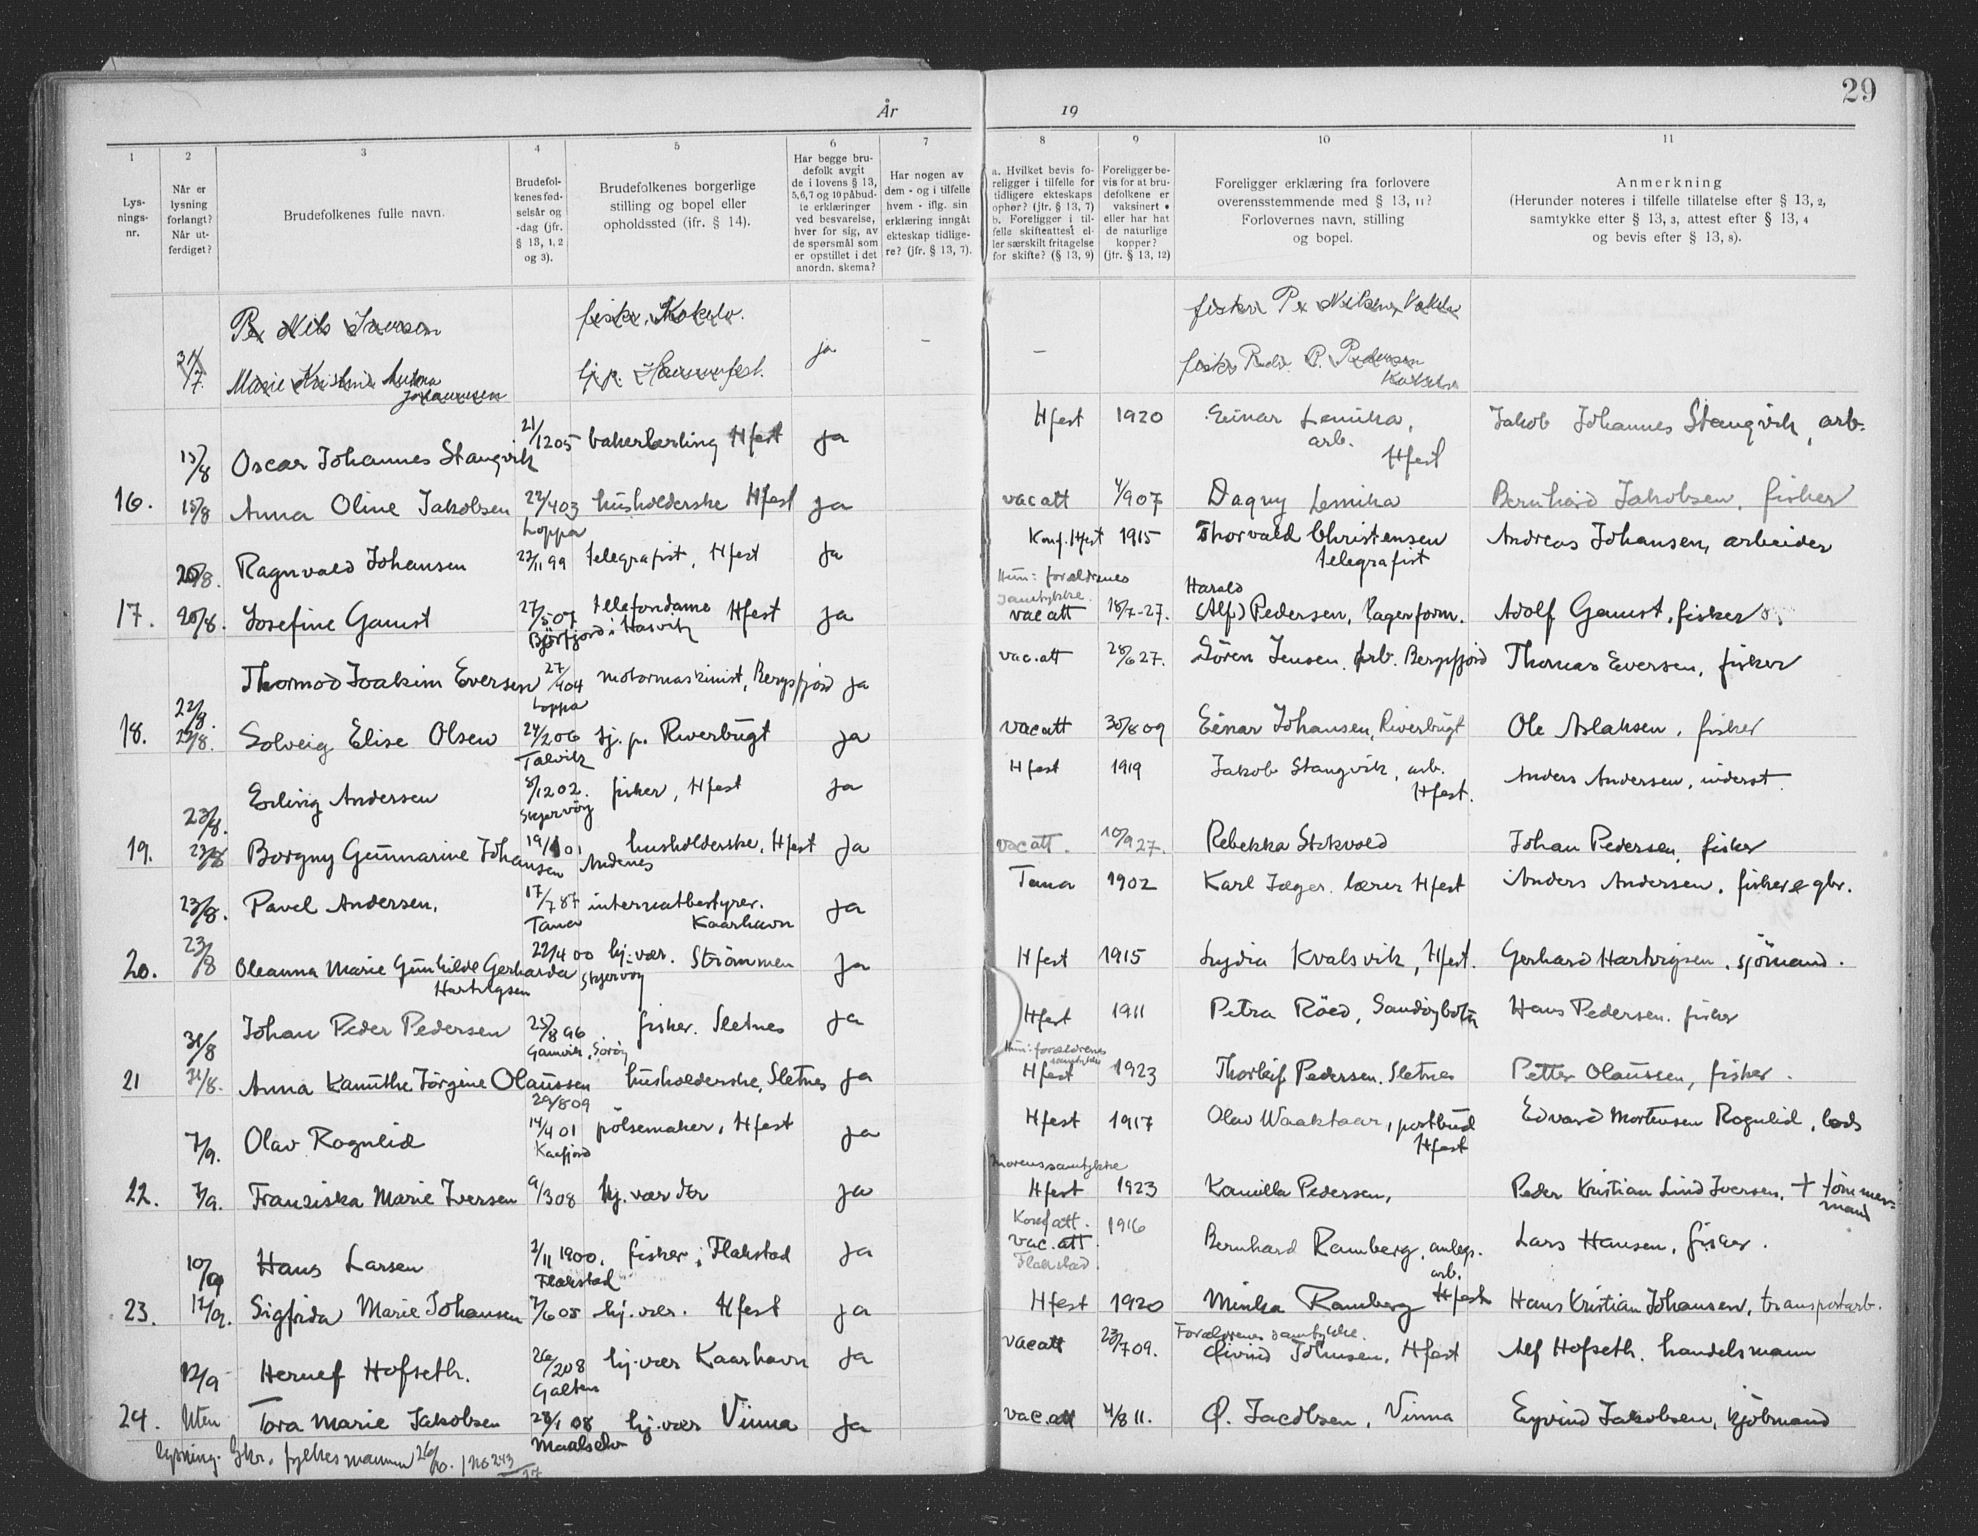 29
År 19
1 2 3 4 5 6 7 8 9 10 11
Lys-
nings-
nr.
Når er
lysning
forlangt?
Når ut-
ferdiget?
Brudefolkenes fulle navn.
Brudefol-
kenes fød-
selsår og
-dag (jfr.
§ 13, 1, 2
og 3).
Brudefolkenes borgerlige
stilling og bopel eller
opholdssted (ifr. § 14).
Har begge bru-
defolk avgit
de i lovens § 13,
5,6,7 og 10 påbud-
te erklæringer
ved besvarelse,
hver for sig, av
de spørsmål som
er opstillet i det
anordn. skema?
Har nogen av
dem - og i tilfelle
hvem - iflg. sin
erklæring inngått
ekteskap tidlige-
re? (jfr. § 13, 7).
a. Hvilket bevis fo-
religger i tilfelle for
tidligere ekteskaps
ophør? (jfr. § 13, 7)
b. Foreligger i til-
felle skifteattest el-
ler særskilt fritagelse
for skifte? (§ 13, 9)
Foreligger be-
vis for at bru-
defolkene er
vaksinert •
eller har hat
de naturlige
kopper?
(jfr. § 13, 12)
Foreligger erklæring fra forlovere
overensstemmende med § 13, 11?
Forlovernes navn, stilling
og bopel.
Anmerkning
(Herunder noteres i tilfelle tillatelse efter § 13, 2,
samtykke efter § 13, 3, attest efter § 13, 4
og bevis efter § 13, 8).
31/7 ja - -
Hfest 1920 Einar Lemika, Jakob Johannes Stangvik, arb.
arb.
Hfest
15/8 Oscar Johannes Stangvik 21/12 05 bakerlærling Hfest ja
16. 15/8 Anna Oline Jakobsen 22/4 03 husholderske Hfest ja vacatt 4/9 07 Dagny Lemika Bernhard Jakobsen, fisker
Loppa
20/8. Ragnvald Johansen 22/11 99 telegrafist, Hfest ja Konf. Hfest 1915 Thorvald Christensen Andreas Johansen, arbeider
telegrafist
Hun: forældrenes
samtykke.
Harald
17. 20/8. Josefine Gamst 27/5 07 telefondame Hfest ja vacatt 18/7-27. (Alf) Pedersen, lagerform. Adolf Gamst, fisker
Björfjord i Hasvik
22/8. Thormod Joakim Eversen 27/4 04 motormaskinist, Bergsfjord ja vac.att 28/6 27. Sören Jensen, arb. Bergsfjord Thomas Eversen, fisker
Loppa
18. 22/8. Solveig Elise Olsen 24/2 06 tj. p. Riverbugt ja vacatt 30/8 09 Einar Johansen, Riverbugt Ole Aslaksen, fisker
Talvik
23/8. Erling Andersen 8/12 02. fisker, Hfest ja Hfest 1919 Jakob Stangvik, arb. Anders Andersen, inderst.
Skjervöy Hfest.
19. 23/8 Borgny Gunnarine Johansen 19/1 01 husholderske, Hfest ja vacatt. 10/9 27. Rebekka Stokvold Johan Pedersen, fisker
Andenes
23/8. Pavel Andersen. 17/7 87 internatbestyrer. ja Tana 1902 Karl Jæger, lærer Hfest Anders Andersen, fisker & gbr.
Tana Kaarhavn
20. 23/8 Oleanna Marie Gunhilde Gerharda 22/4 00 hj.vær. Strömmen ja Hfest 1915 Lydia Kvalsvik, Hfest. Gerhard Hartvigsen, sjömand.
Hartvigsen Skjervöy
31/8 Johan Peder Pedersen 25/8 96 fisker. Sletnes ja Hfest 1911 Petra Röed, Sandöybotn Hans Pedersen. fisker
Gamvik, Söröy
Hun: forældrenes
samtykke
21 31/8. Anna Kanuthe Jörgine Olaussen husholderske, Sletnes ja Hfest 1923 Thorleif Pedersen. Sletnes Petter Olaussen, fisker.
29/8 09
7/9. Olav Rognlid 14/4 01 pölsemaker, Hfest ja Hfest 1917 Olav Waaktaar, postbud Edvard Mortensen Rognlid, lods
Kaafjord Hfest
Morens samtykke
22. 7/9. Franziska Marie Iversen 9/3 08 hj. vær der ja Hfest 1923 Kamilla Pedersen, Peder Kristian Lind Iversen, + tömmer-
mand
10/9 Hans Larsen 2/11 1900. fisker, Flakstad ja Konf att. 1916 Bernhard Ramberg, anlegs. Lars Hansen, fisker.
vac. att. arb.
Flakstad Flakstad Hfest
23. 12/9. Sigfrida Marie Johansen 7/6 05 hj. vær. Hfest ja Hfest 1920 Minka Ramberg Hans Kristian Johansen, transportarb.
Forældrenes samtykke.
12/9 Herlef Hofseth. 26/2 08 hj. vær Kaarhavn ja vacatt 23/7 09. Øivind Johnsen, Hfest Alf Hofseth. handelsmann
Galten
24. Uten Tora Marie Jakobsen 28/1 08 hj. vær Vinna ja vac.att 4/8 11. O. Jacobsen, Vinna Eyvind Jakobsen, kjöbmand
Maalselv
lysning. fylkesmannen 26/10. No 243
27